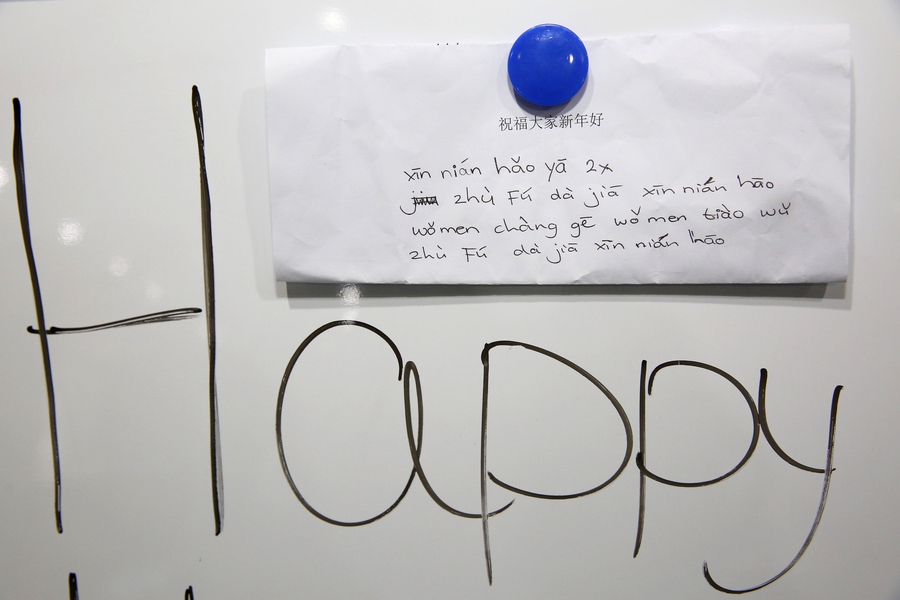 祝福大家新年好
xīn nián hǎo yā 2x
zhù Fú dà jiā xīn nián hāo
wǒ men chàng gē wǒ men tiào wǔ
zhù Fú dà jiā xīn nián hāo
Happy